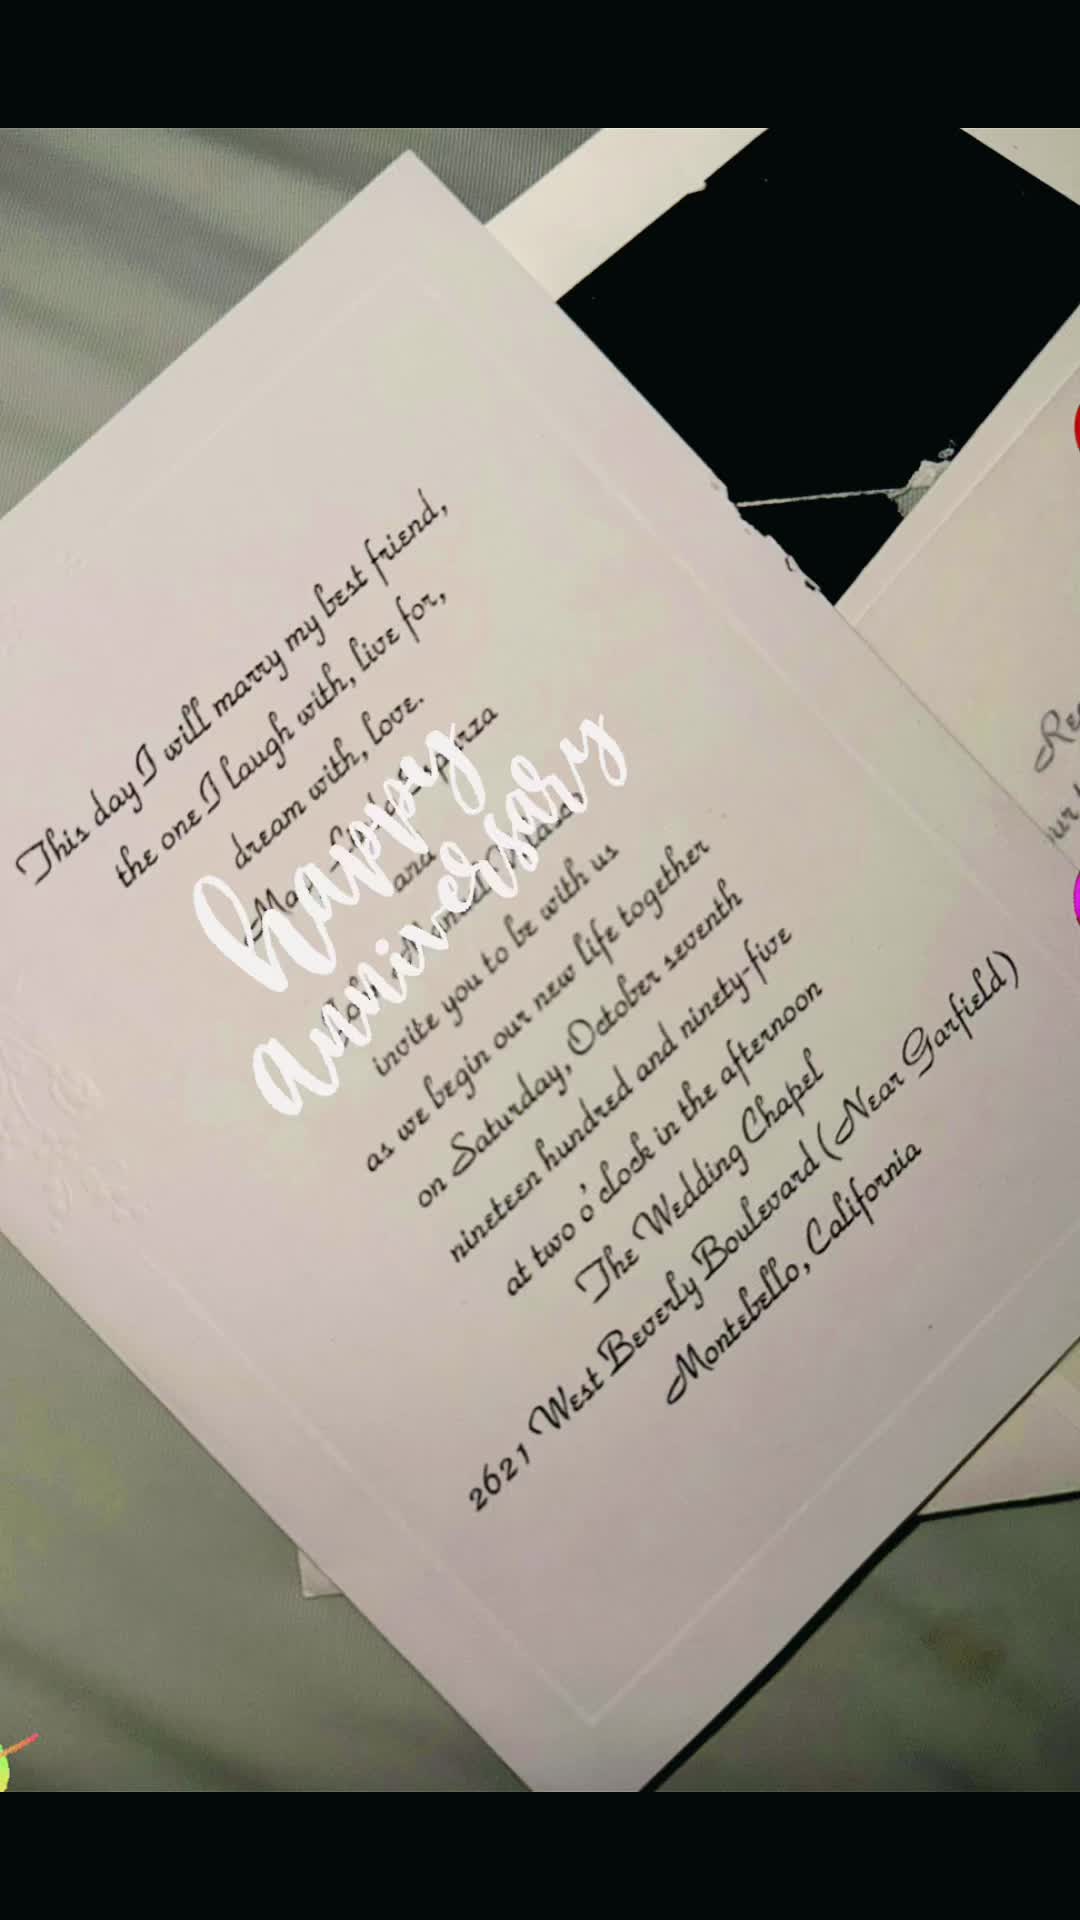 This day I will marry my best friend,
the one I laugh with, live for,
dream with, love.
and
invite you to be with us
as we begin our new life together
on Saturday, October seventh
nineteen hundred and ninety-five
at two o'clock in the afternoon
The Wedding Chapel
2621 West Beverly Boulevard (Near Garfield)
Montebello, California
happy
anniversary